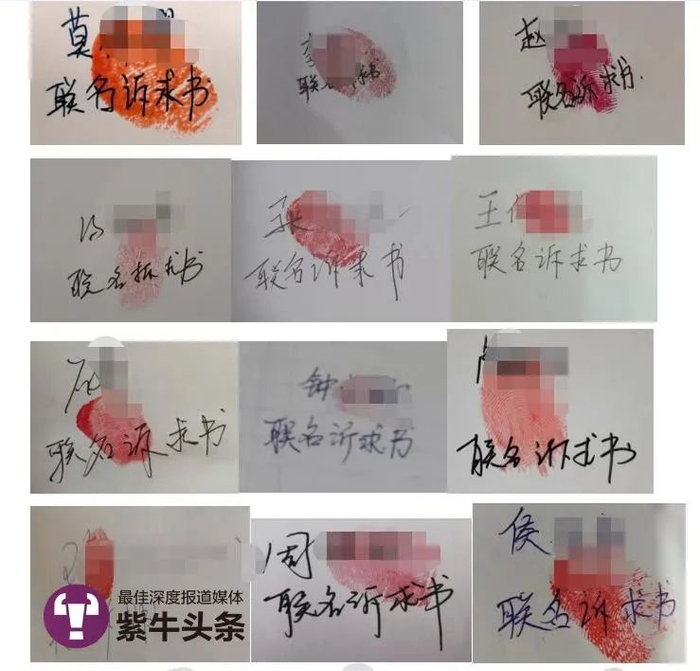 莫
联名诉求书
李
联 书
赵
联名诉求书.
冯
联名诉求书
张
联名诉求书
王
联名诉求书
联名诉求书
钟
联名诉求书
联名诉求书
周
联名诉求书
侯
联名诉求书
最佳深度报道媒体
紫牛头条